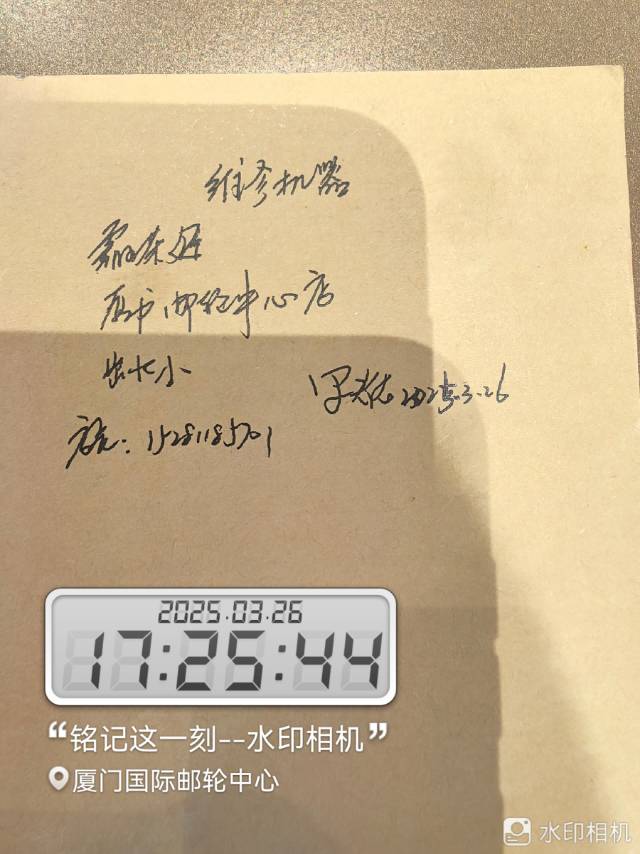 维修机器
霸王茶姬
厦门邮轮中心店
2025.3.26
2025.03.26
17:25:44
“铭记这一刻--水印相机”
厦门国际邮轮中心
水印相机